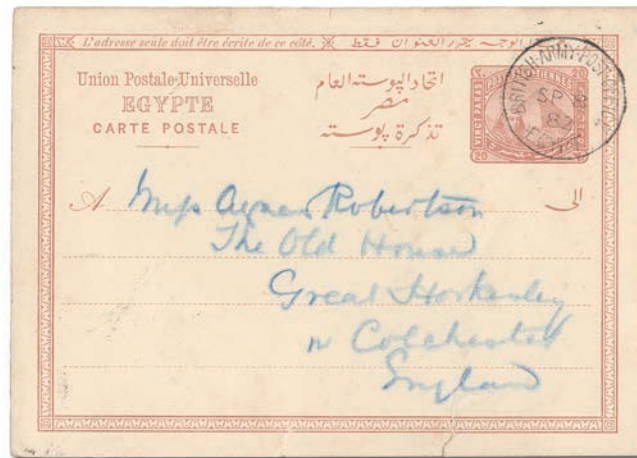 L'adresse seule doit être écrite de ce côté. الوجه يحرر العنوان فقط
Union Postale Universelle
EGYPTE
CARTE POSTALE
اتحاد البوسته العام
مصر
تذكرة بوسته
BRITISH ARMY POST OFFICE
SP 18
82
EGYPT
VINGT PARAS
20
20
20
A Miss Agnes Robertson الى
The Old House
Great Horkesley
n Colchester
England